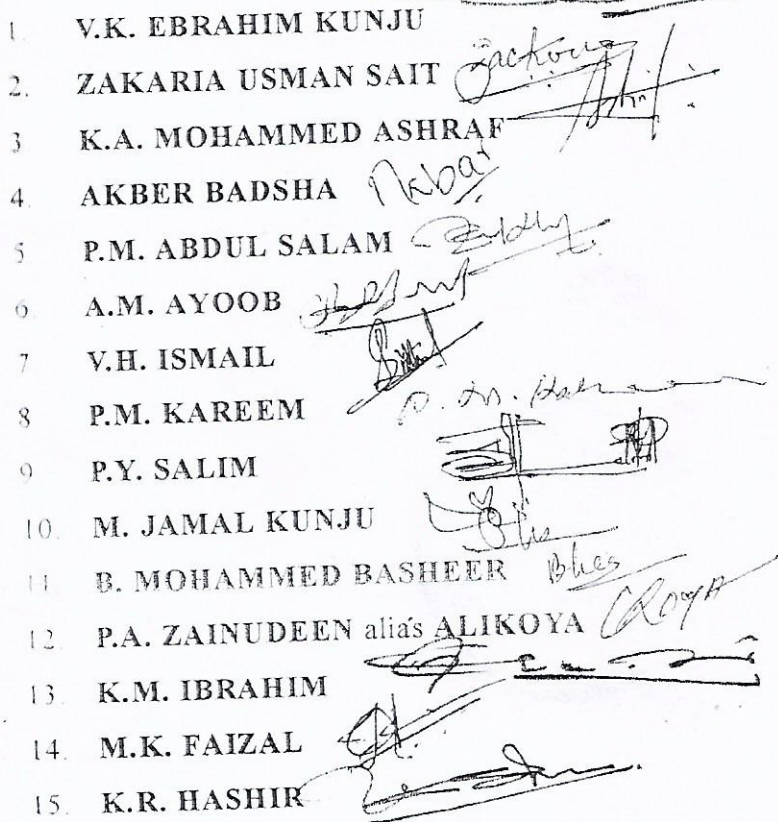 1. V.K. EBRAHIM KUNJU
2. ZAKARIA USMAN SAIT
3 K.A. MOHAMMED ASHRAF
4. AKBER BADSHA Akbar
5 P.M. ABDUL SALAM
6. A.M. AYOOB
7 V.H. ISMAIL
8 P.M. KAREEM P. M.
9 P.Y. SALIM
10. M. JAMAL KUNJU
11 B. MOHAMMED BASHEER
12. P.A. ZAINUDEEN alias ALIKOYA
13. K.M. IBRAHIM
14. M.K. FAIZAL
15. K.R. HASHIR